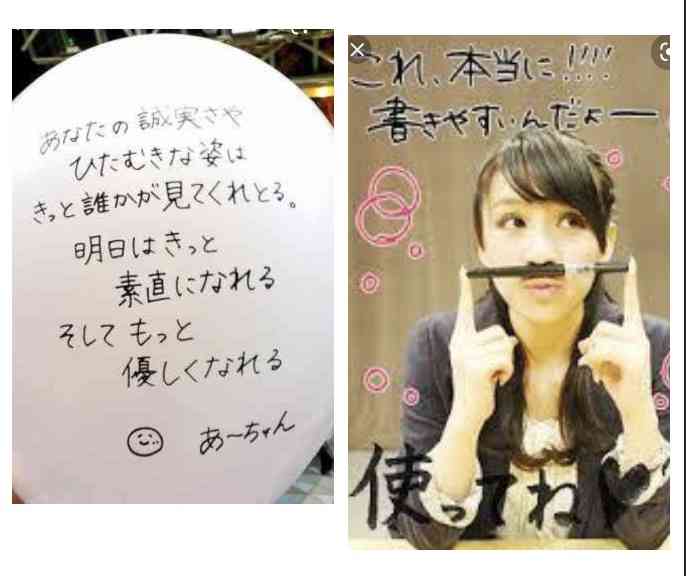 あなたの誠実さや
ひたむきな姿は
きっと誰かが見てくれとる。
明日はきっと
素直になれる
そして もっと
優しくなれる
あ～ちゃん
これ、本当に!!!!
書きやすいんだょー
使ってね♥